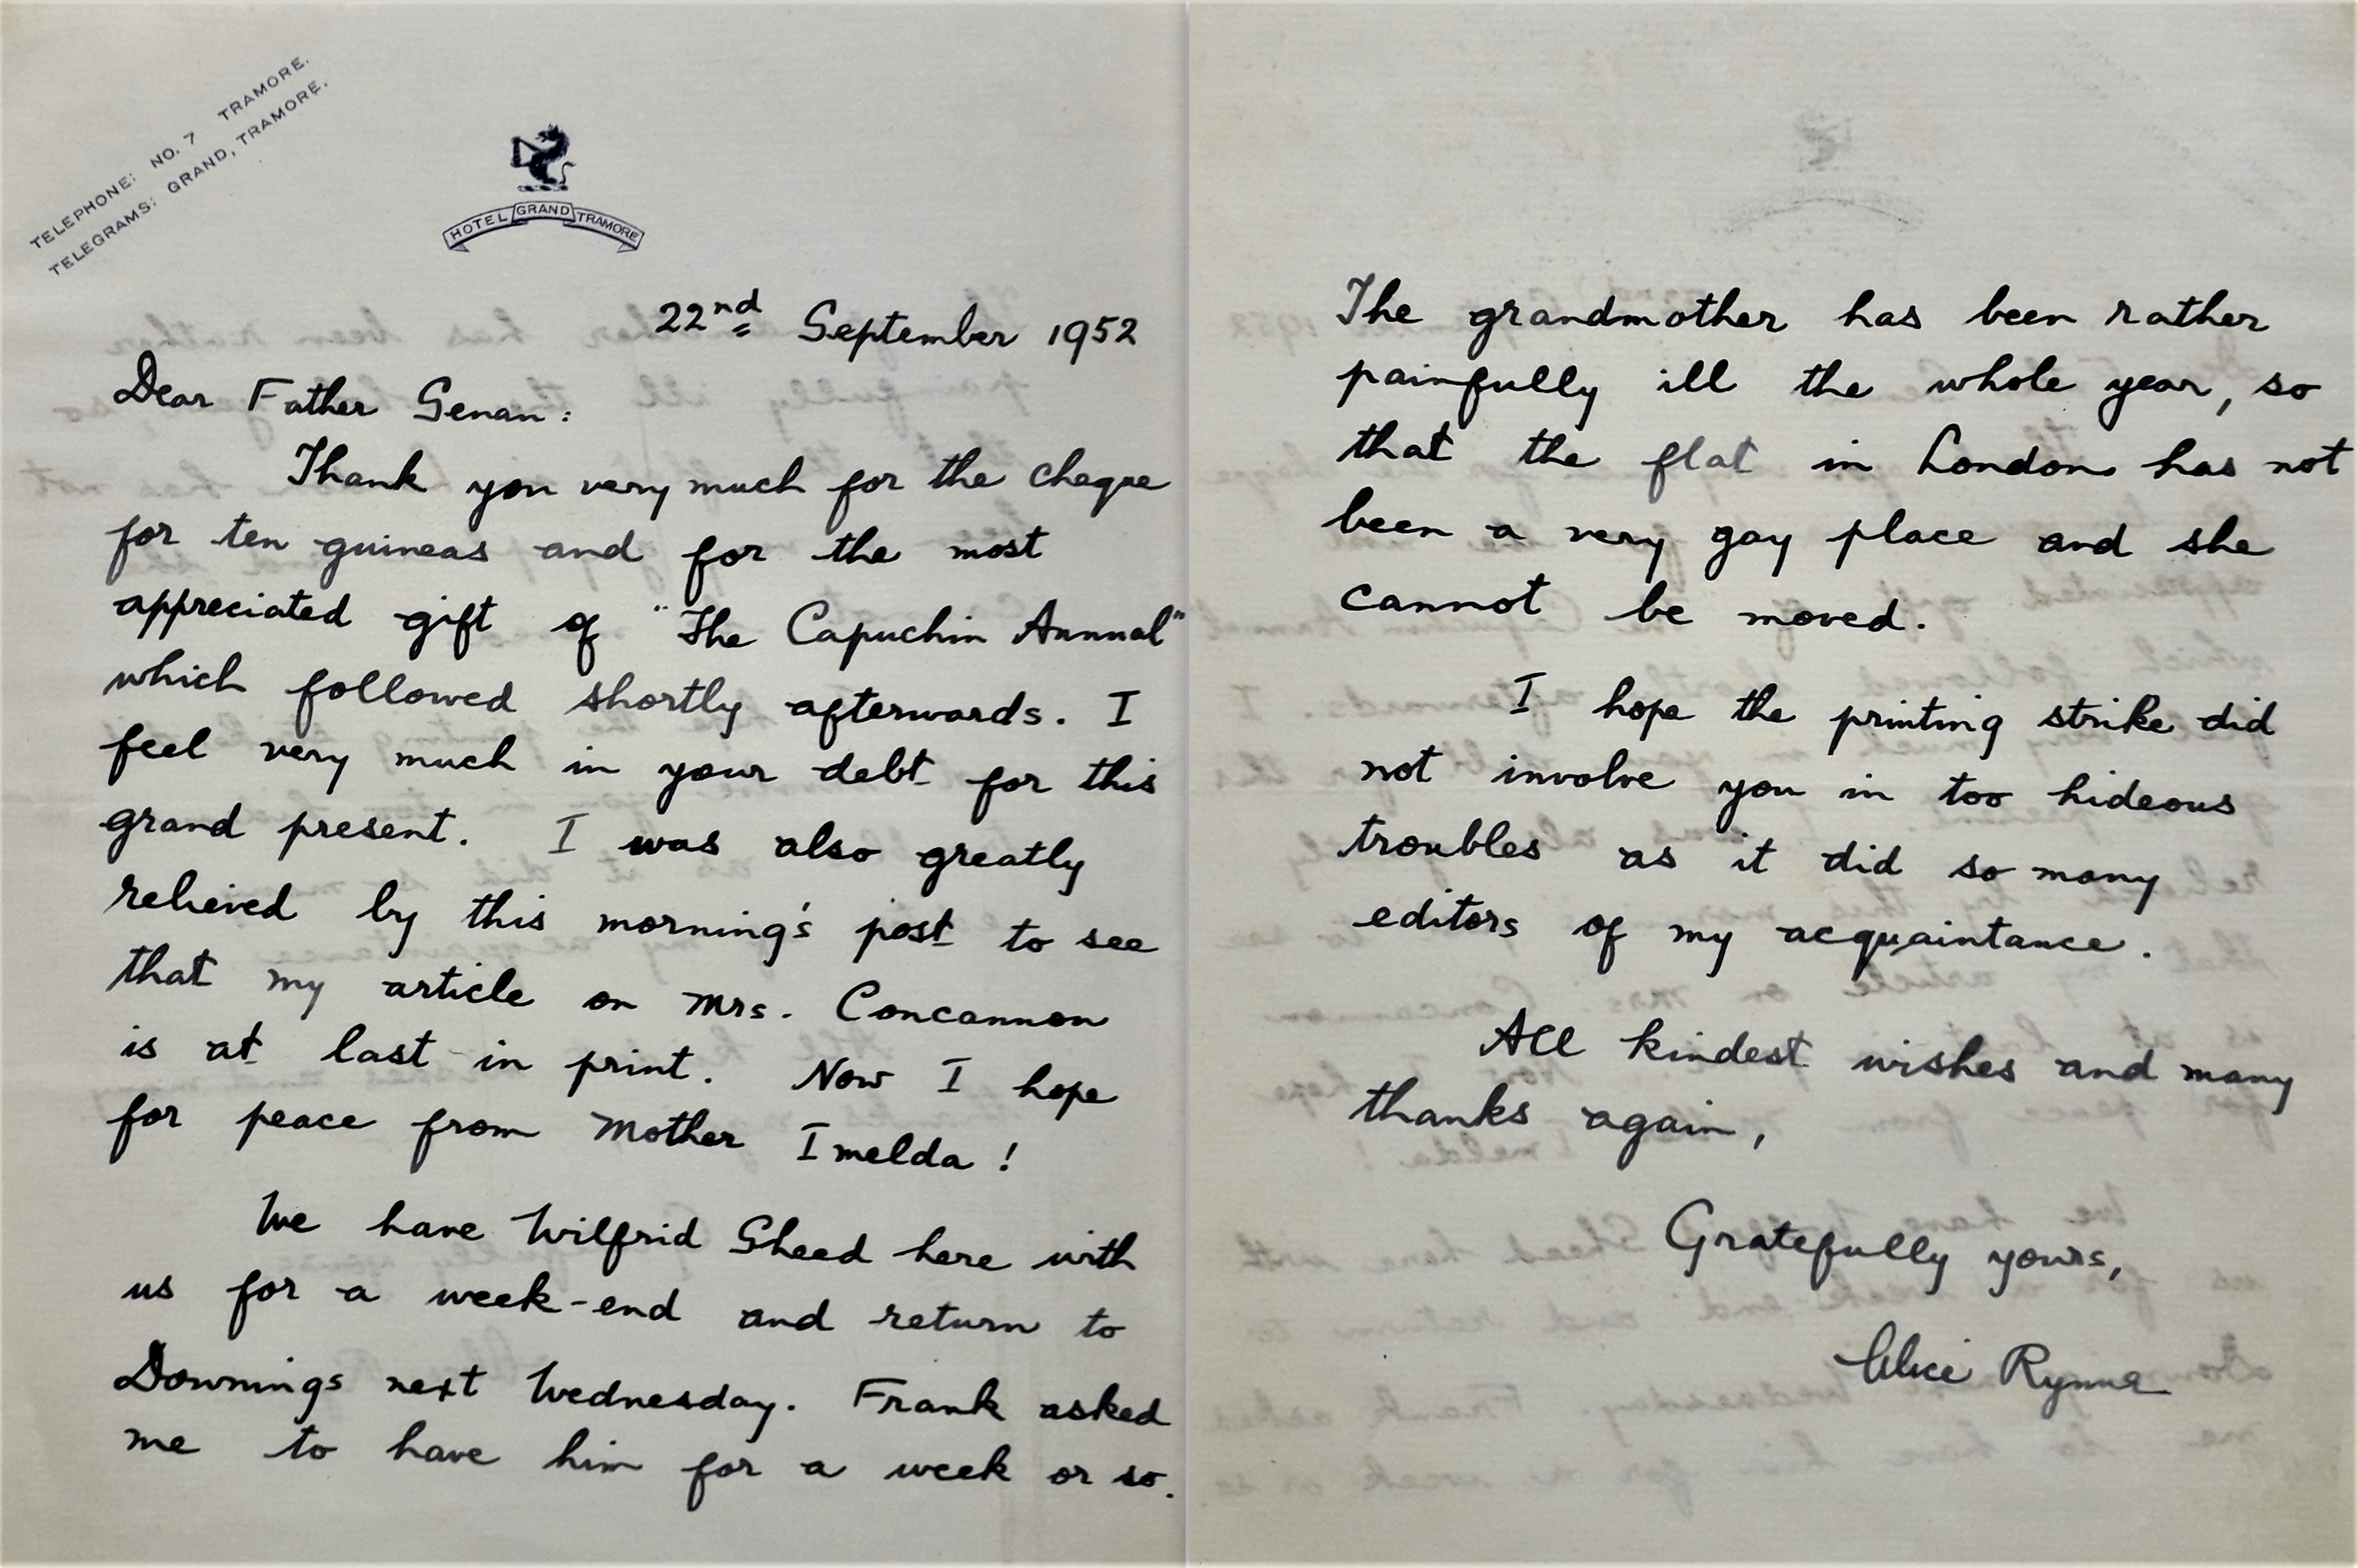 TELEPHONE: NO. 7 TRAMORE.
TELEGRAMS: GRAND, TRAMORE.
HOTEL GRAND TRAMORE
22nd September 1952
Dear Father Senan:
Thank you very much for the cheque
for ten guineas and for the most
appreciated gift of "The Capuchin Annual"
which followed shortly afterwards. I
feel very much in your debt for this
grand present. I was also greatly
relieved by this morning's post to see
that my article on Mrs. Concannon
is at last in print. Now I hope
for peace from Mother Imelda!
We have Wilfrid Sheed here with
us for a week-end and return to
Downings next Wednesday. Frank asked
me to have him for a week or so.
The grandmother has been rather
painfully ill the whole year, so
that the flat in London has not
been a very gay place and she
cannot be moved.
I hope the printing strike did
not involve you in too hideous
troubles as it did so many
editors of my acquaintance.
All kindest wishes and many
thanks again,
Gratefully yours,
Alice Rynne